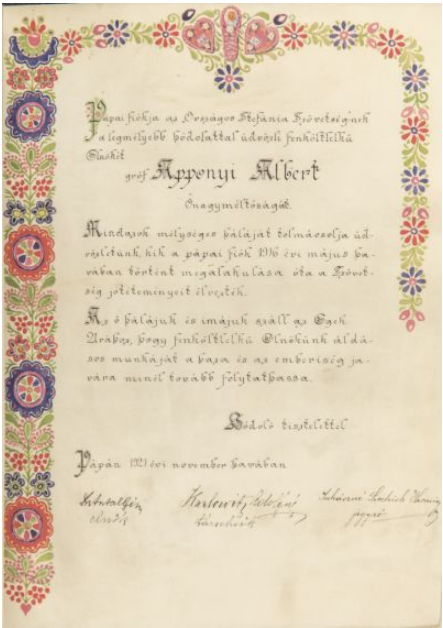 Pápai fiókja az Országos Stefánia Szövetségnek
a legmélyebb hódolattal üdvözli fenköltlelkű
Elnökét
gróf Apponyi Albert
Őnagyméltóságát.
Mindazok mélységes háláját tolmácsolja üd-
vözletünk, kik a pápai fiók 1916 évi május ha-
vában történt megalakulása óta a Szövet-
ség jótéteményeit élvezték.
Az ő hálájuk és imájuk száll az Egek
Urához, hogy fenköltlelkű Elnökünk áldá-
sos munkáját a haza és az emberiség ja-
vára minél tovább folytathassa.
Hódoló tisztelettel
Pápán 1921 évi november havában
elnök
társelnök
jegyző